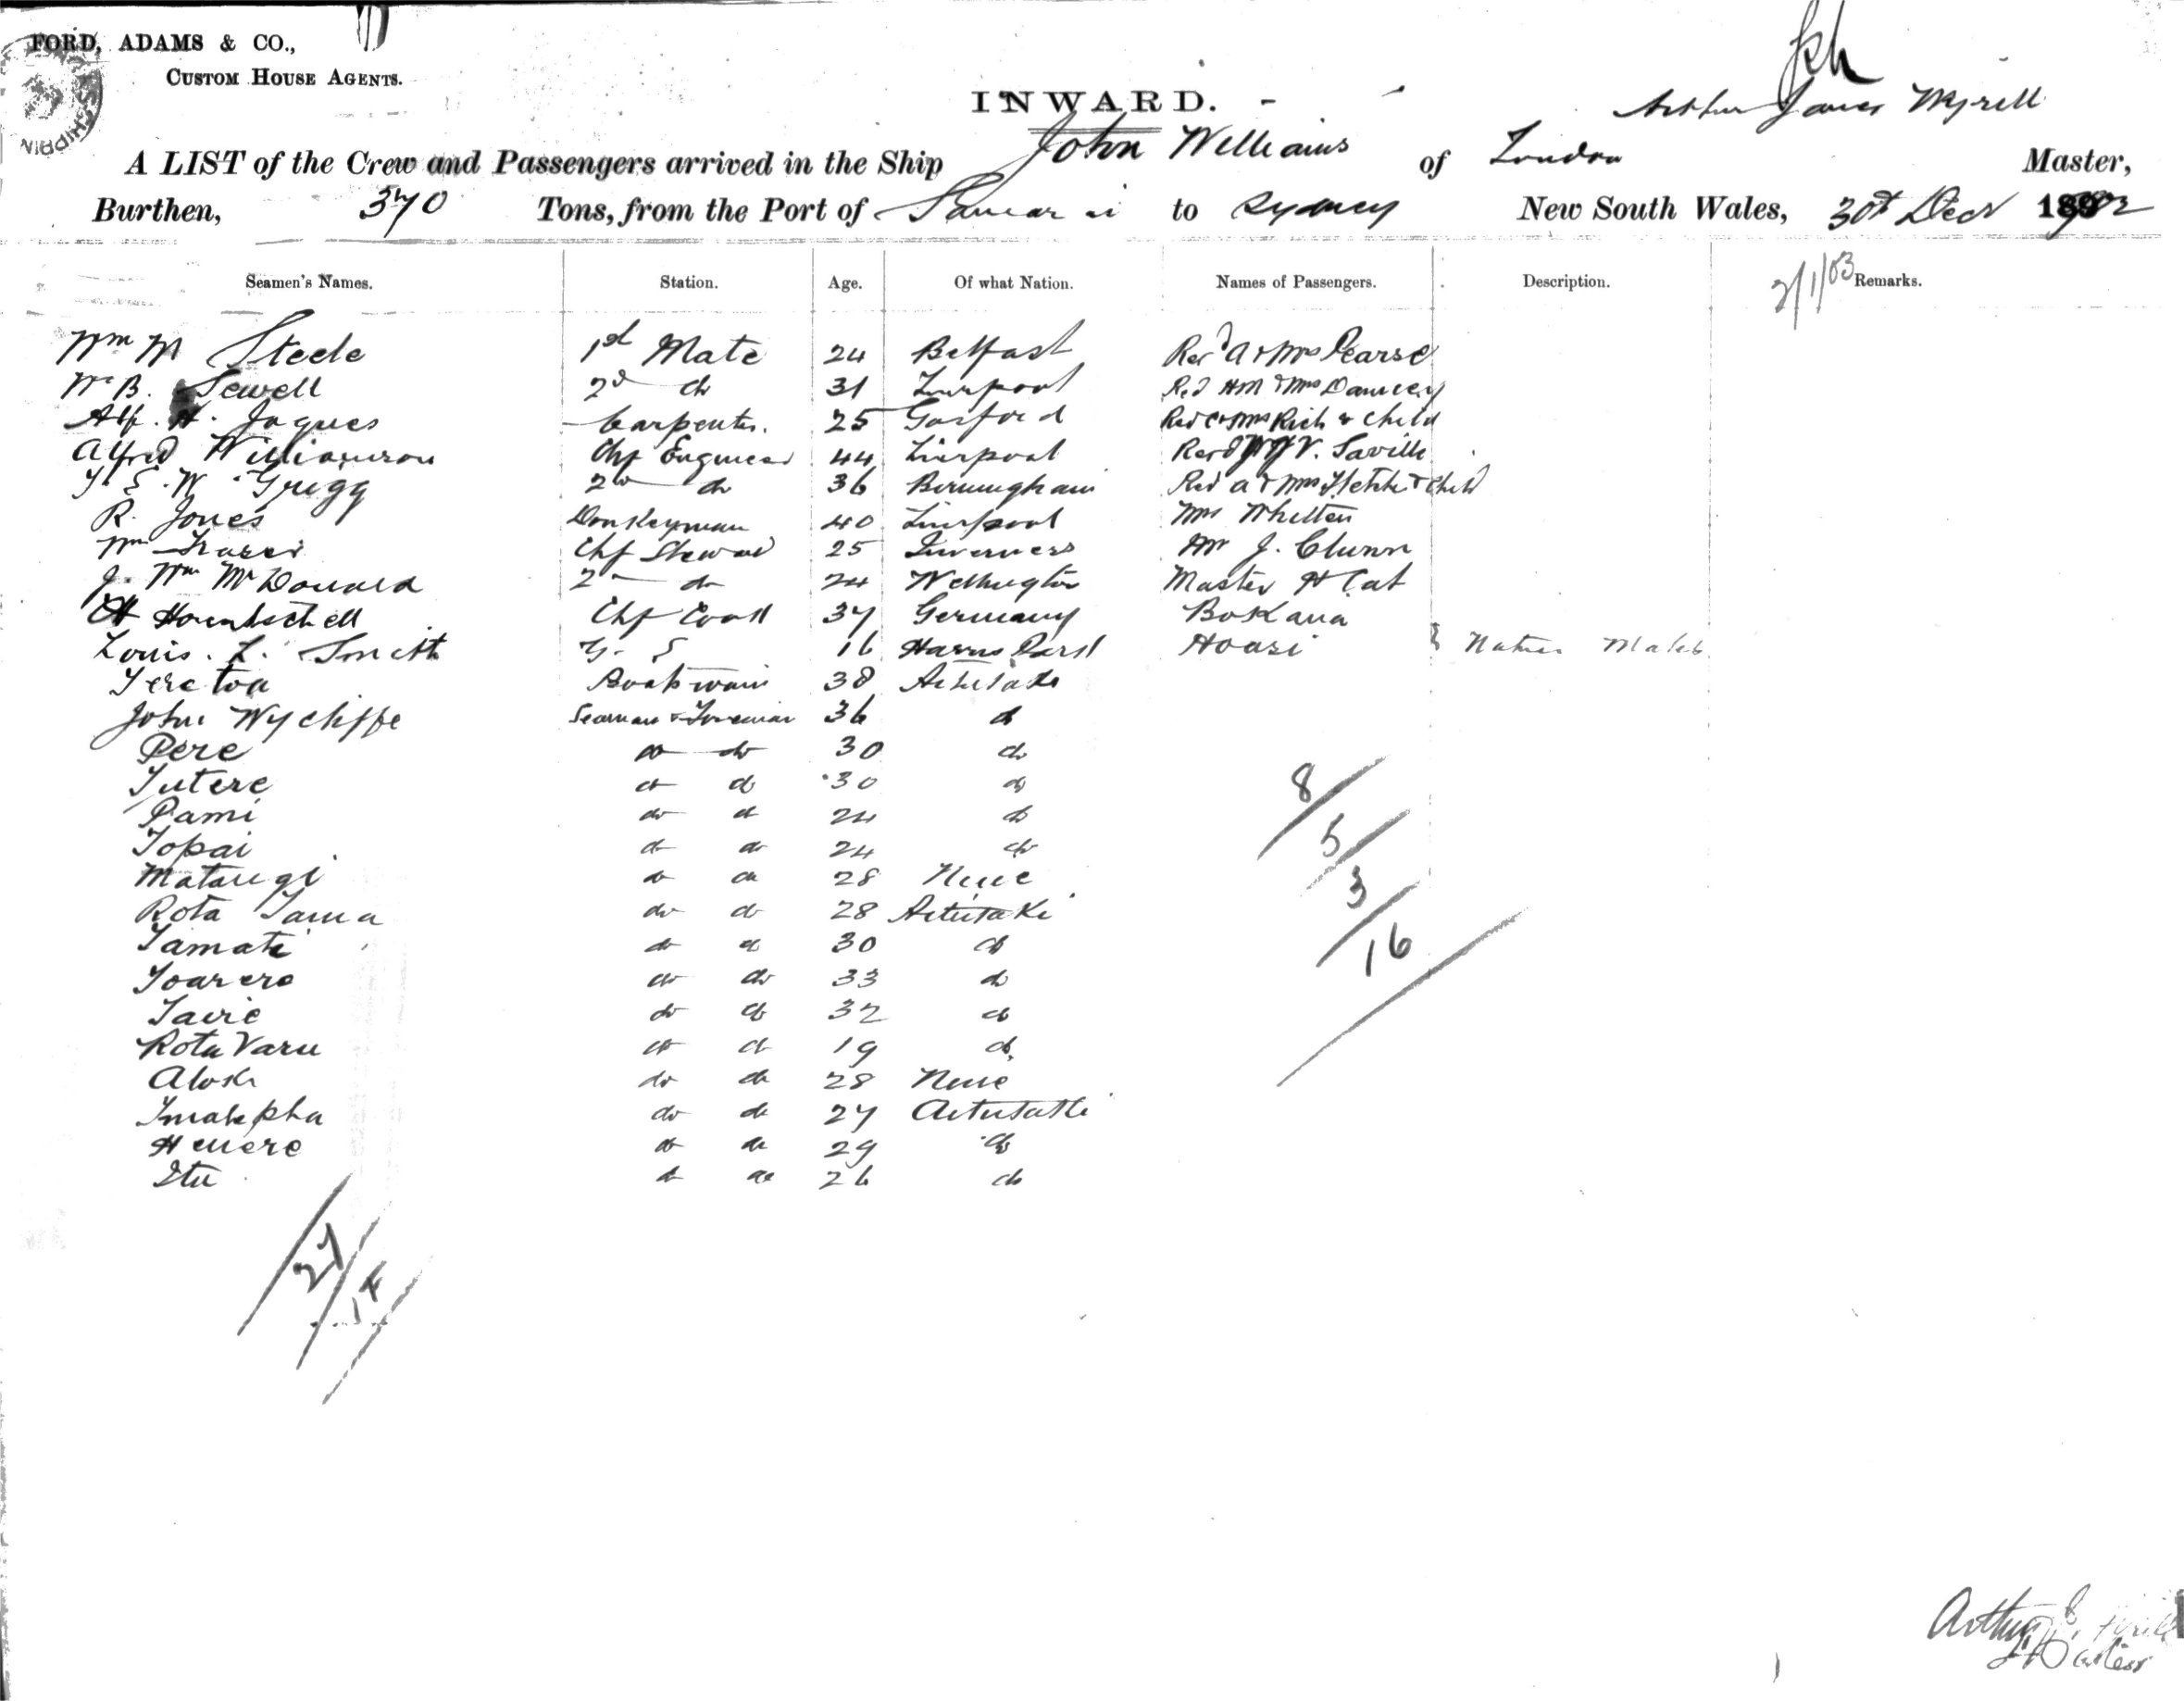 FORD, ADAMS & CO.,
CUSTOM HOUSE AGENTS.
INWARD. -
Arthur James
A LIST of the Crew and Passengers arrived in the Ship John Williams of London Master,
Burthen, 370 Tons, from the Port of to Sydney New South Wales, 30th Decr 1902
Seamen's Names. Station. Age. Of what Nation. Names of Passengers. Description. 2/1/03 Remarks.
Wm M Steele 1st Mate 24 Belfast Revd A & Mrs Pearse
Wm B. Sewell 2d do 31 Liverpool Revd HM & Mrs Dauncey
Alf. H. Jaques Carpenter. 25 Gosford Revd C & Mrs Rich & Child
Alfred Williamson Chf Engineer 44 Liverpool Revd V. Saville
Grigg 2nd do 36 Birmingham Revd A & Mrs Fletcher & Child
R. Jones Donkeyman 40 Liverpool Mrs Whitten
Wm Fraser Chf Steward 25 Inverness Mr J. Clunn
J. Wm McDonald 2nd do 24 Wellington Master H Cat
Chf Cook 37 Germany Bokana
Louis. L. Smith 16 Harris Park Hoasi } Native Males
Teretoa Boatswain 38 Aitutaki
John Wycliffe Seaman & Fireman 36 do
Pere do do 30 do
Tutere do do 30 do
Pami do do 24 do
Topai do do 24 do
Matangi do do 28 Niue
Rota Tama do do 28 Aitutaki
Tamati do do 30 do
Toarere do do 33 do
Tairi do do 32 do
Rota Varu do do 19 do
do do 28 Niue
do do 27 Aitutaki
do do 29 do
Itu do do 26 do
8/
5/
3/
16
27/
14
Arthur